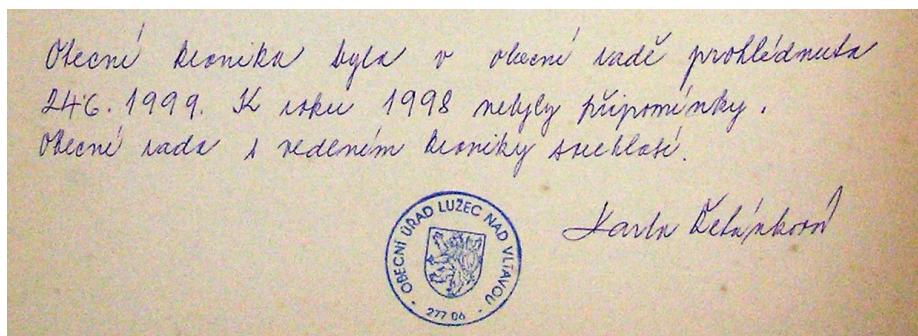 Obecní kronika byla v obecní radě prohlédnuta
24.6.1999. K roku 1998 nebyly připomínky.
Obecní rada s vedením kroniky souhlasí.
OBECNÍ ÚŘAD LUŽEC NAD VLTAVOU
277 06
Karla